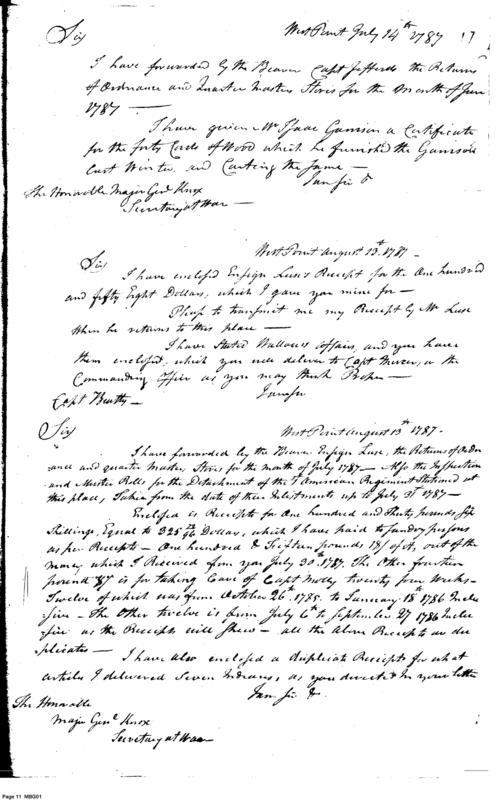 West Point July 14th 1787 17
Sir
I have forwarded by the Bearer Capt Jefferds the Returns
of Ordnance and Quarter Masters Stores for the Month of June
1787 —
I have given Mr Isaac Garrison a Certificate
for the forty Cords of Wood which he furnished the Garrison
Last Winter, and Carting the same —
I am Sir &
The Honorable Major Genl Knox
Secretary at War —
West Point August 13th 1787 -
Sir
I have enclosed Ensign Luse's Receipt for the One hundred
and fifty Eight Dollars, which I gave you mine for —
Please to transmit me my Receipt by Mr Luse
when he returns to this place —
I have Stated affairs, and you have
them enclosed, which you will deliver to Capt Mercer, or the
Commanding Officer as you may think Proper —
I am Sir
Capt Beatty —
West Point August 13th 1787 -
Sir
I have forwarded by the Bearer Ensign Luse, the Returns of Ordn
ance and quarter Masters Stores for the month of July 1787 — Also the Inspection
and Muster Rolls for the Detachment of the 1st American Regiment Stationed at
this place, Taken from the date of their Inlistments up to July 31st 1787 —
Enclosed is Receipts for One hundred and Thirty pounds, six
Shillings, Equal to 325 Dollars, which I have paid to Sundry persons
as per Receipts — One hundred & Sixteen pounds out of the
money which I Received from you July 30th 1787. The Other fourteen
pounds is for taking Care of Capt Molly twenty four Weeks -
Twelve of which was from October 26th 1785. to January 18th 1786 Inclu
sive - The Other twelve is from July 6th to September 27 1786 Inclu
sive as the Receipts will Shew — all the Above Receipts are du
plicates —
I have also enclosed a duplicate Receipt for what
articles I delivered Seven Indians, as you directed In your letter
I am Sir &
The Honorable
Major Genl Knox
Secretary at War
Page 11 MBG01